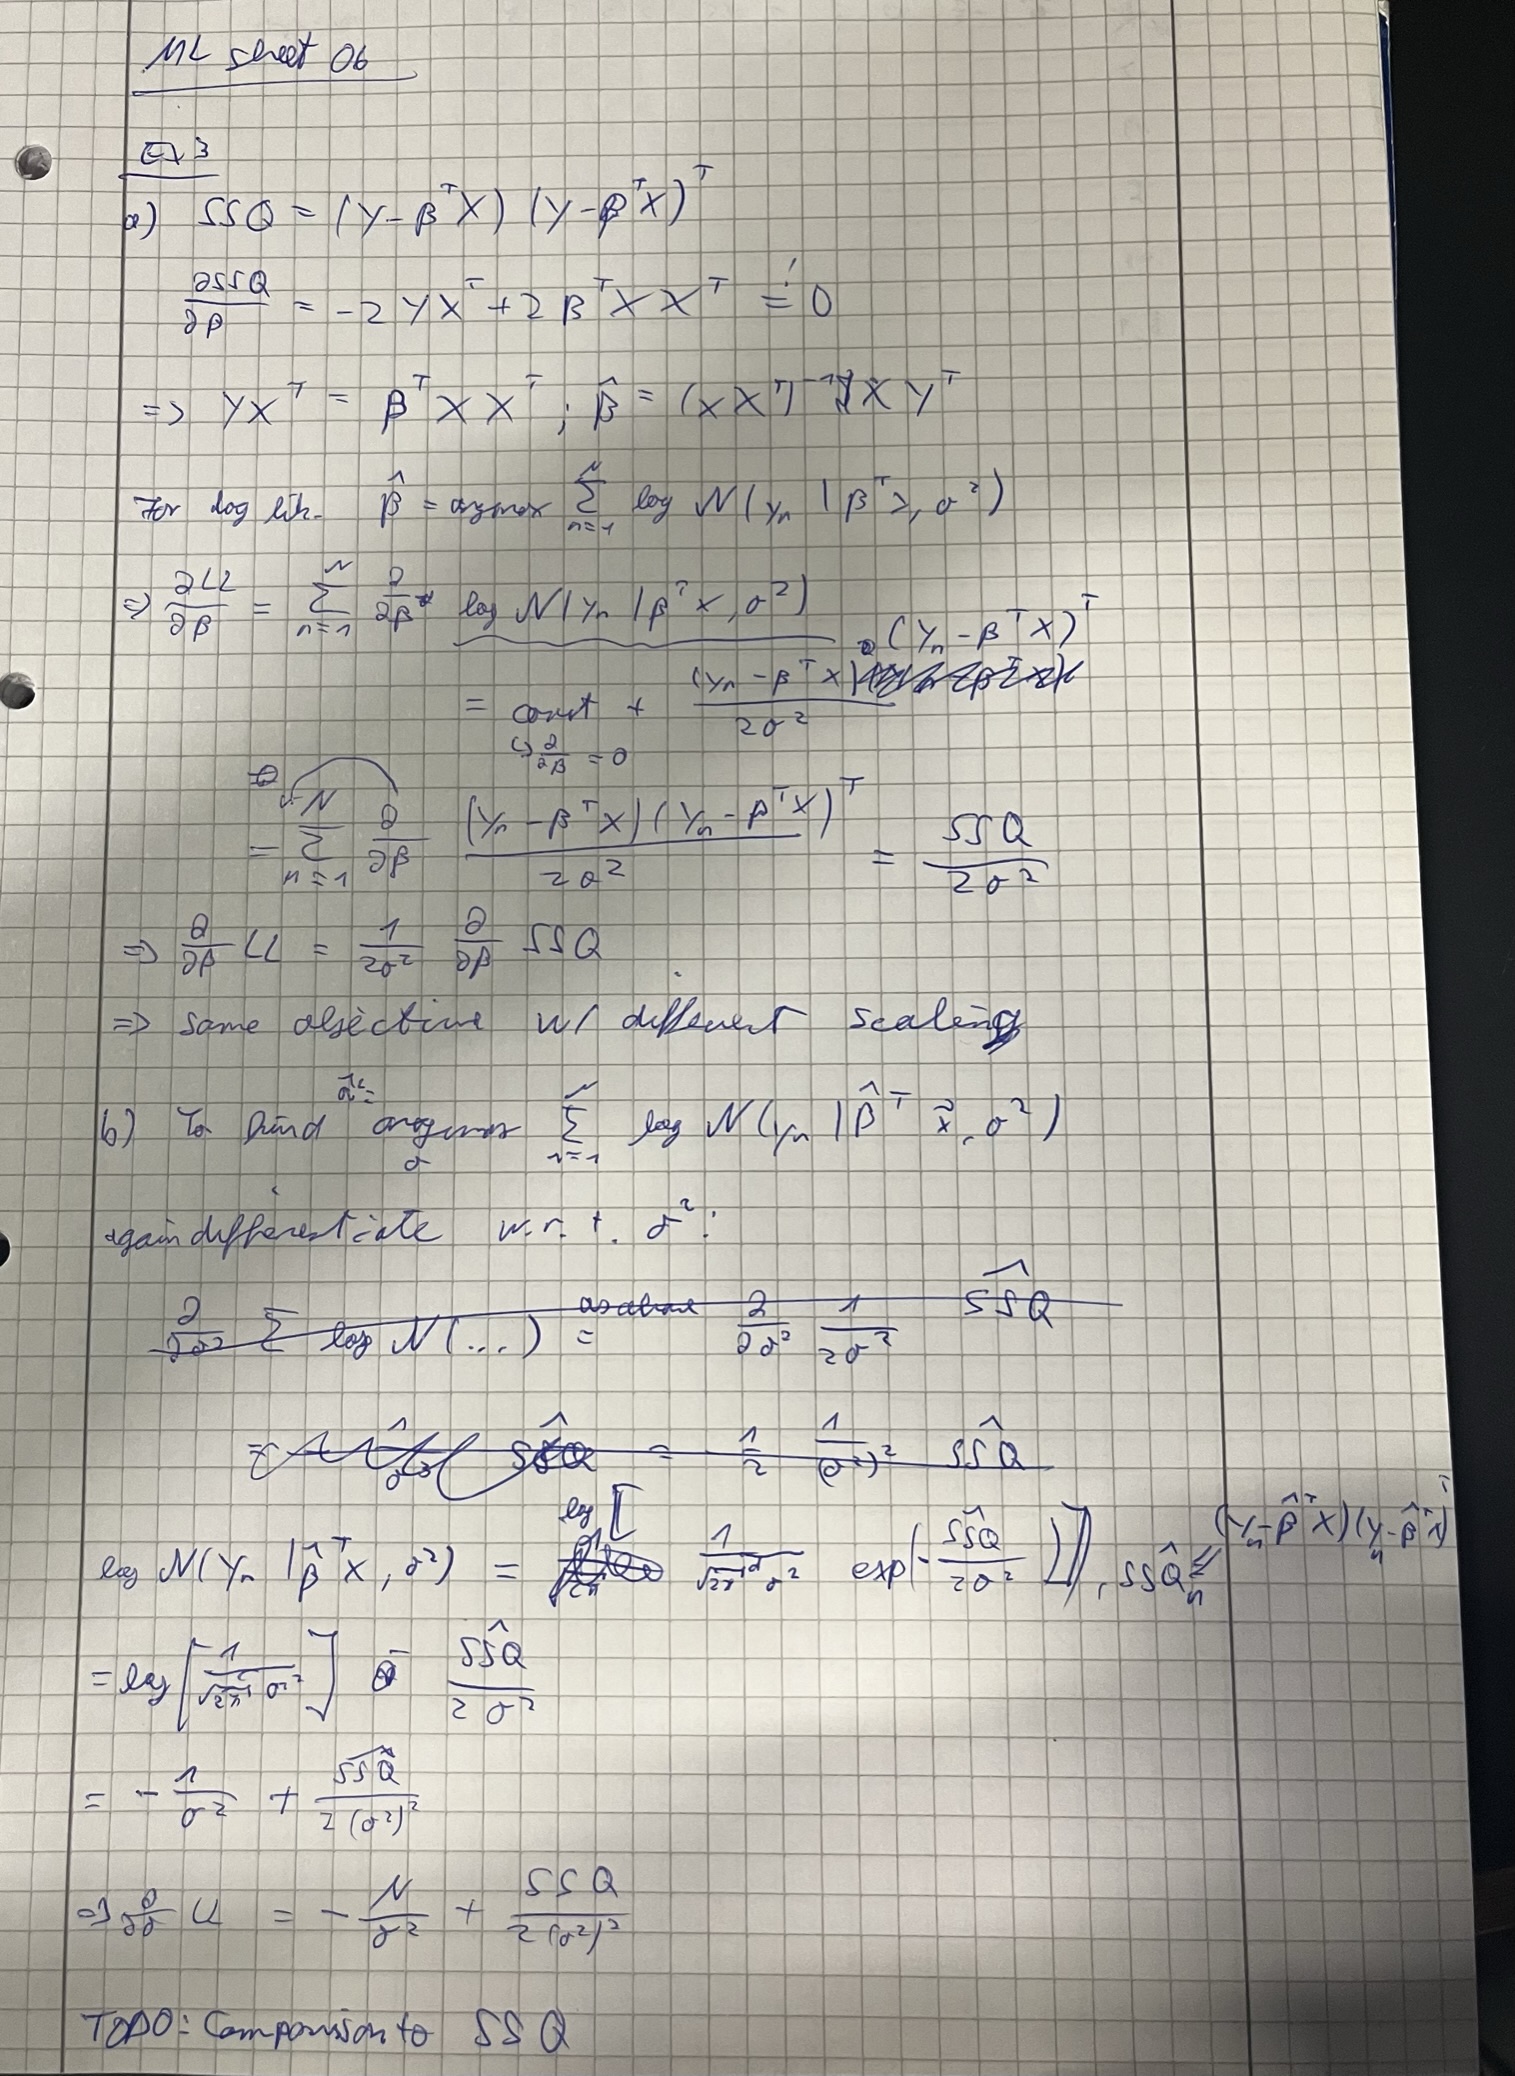 ML sheet 06
Ex 3
a) SSQ = (y - β^T X) (y - β^T X)^T
∂SSQ/∂β = -2 y X^T + 2 β^T X X^T =! 0
=> y X^T = β^T X X^T ; β̂ = (X X^T)^-1 X y^T
For log lik. β̂ = argmax Σ_{n=1}^N log N(y_n | β^T x, σ²)
=> ∂LL/∂β = Σ_{n=1}^N ∂/∂β log N(y_n | β^T x, σ²)
= const + (y_n - β^T x) · (y_n - β^T x)^T / 2σ²
↳ ∂/∂β = 0
= Σ_{n=1}^N ∂/∂β (y_n - β^T x) (y_n - β^T x)^T / 2σ² = SSQ / 2σ²
=> ∂/∂β LL = 1/2σ² ∂/∂β SSQ
=> same objective w/ different scaling
b) To find σ̂² = argmax_σ Σ_{n=1}^N log N(y_n | β̂^T x̃, σ²)
again differentiate w.r.t. σ²:
∂/∂σ² Σ log N(...) = as above ∂/∂σ² 1/2σ² SSQ^
= SSQ^ = 1/2 1/(σ²)² SSQ^
log N(y_n | β̂^T x, σ²) = log [ 1/√2π σ² exp(- SSQ^ / 2σ²) ], SSQ^_n = (y_n - β̂^T x)(y_n - β̂^T x)^T
= log [ 1/√2π σ² ] - SSQ^ / 2σ²
= - 1/σ² + SSQ^ / 2(σ²)²
=> ∂/∂σ LL = - N/σ² + SSQ / 2(σ²)²
TODO: Comparision to SSQ